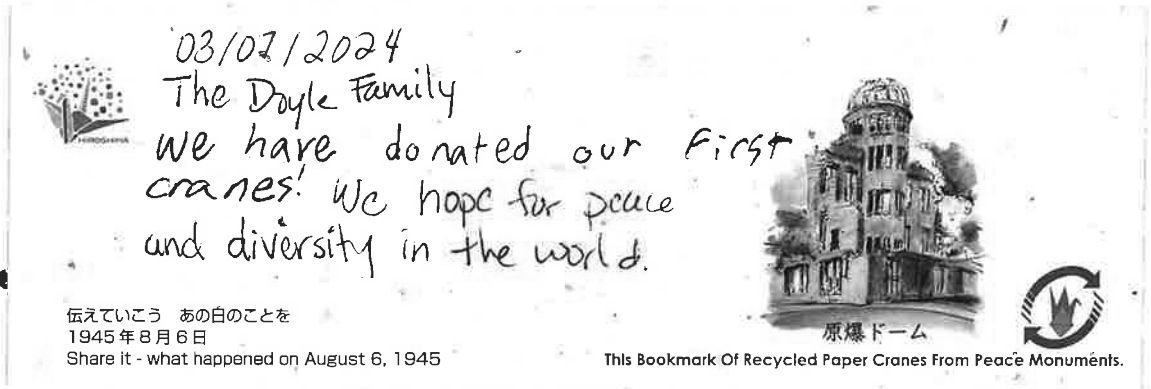 03/07/2024
The Doyle Family
We have donated our first
cranes! We hope for peace
and diversity in the world.
HIROSHIMA
伝えていこう あの日のことを
1945年8月6日
Share it - what happened on August 6, 1945
原爆ドーム
This Bookmark Of Recycled Paper Cranes From Peace Monuments.